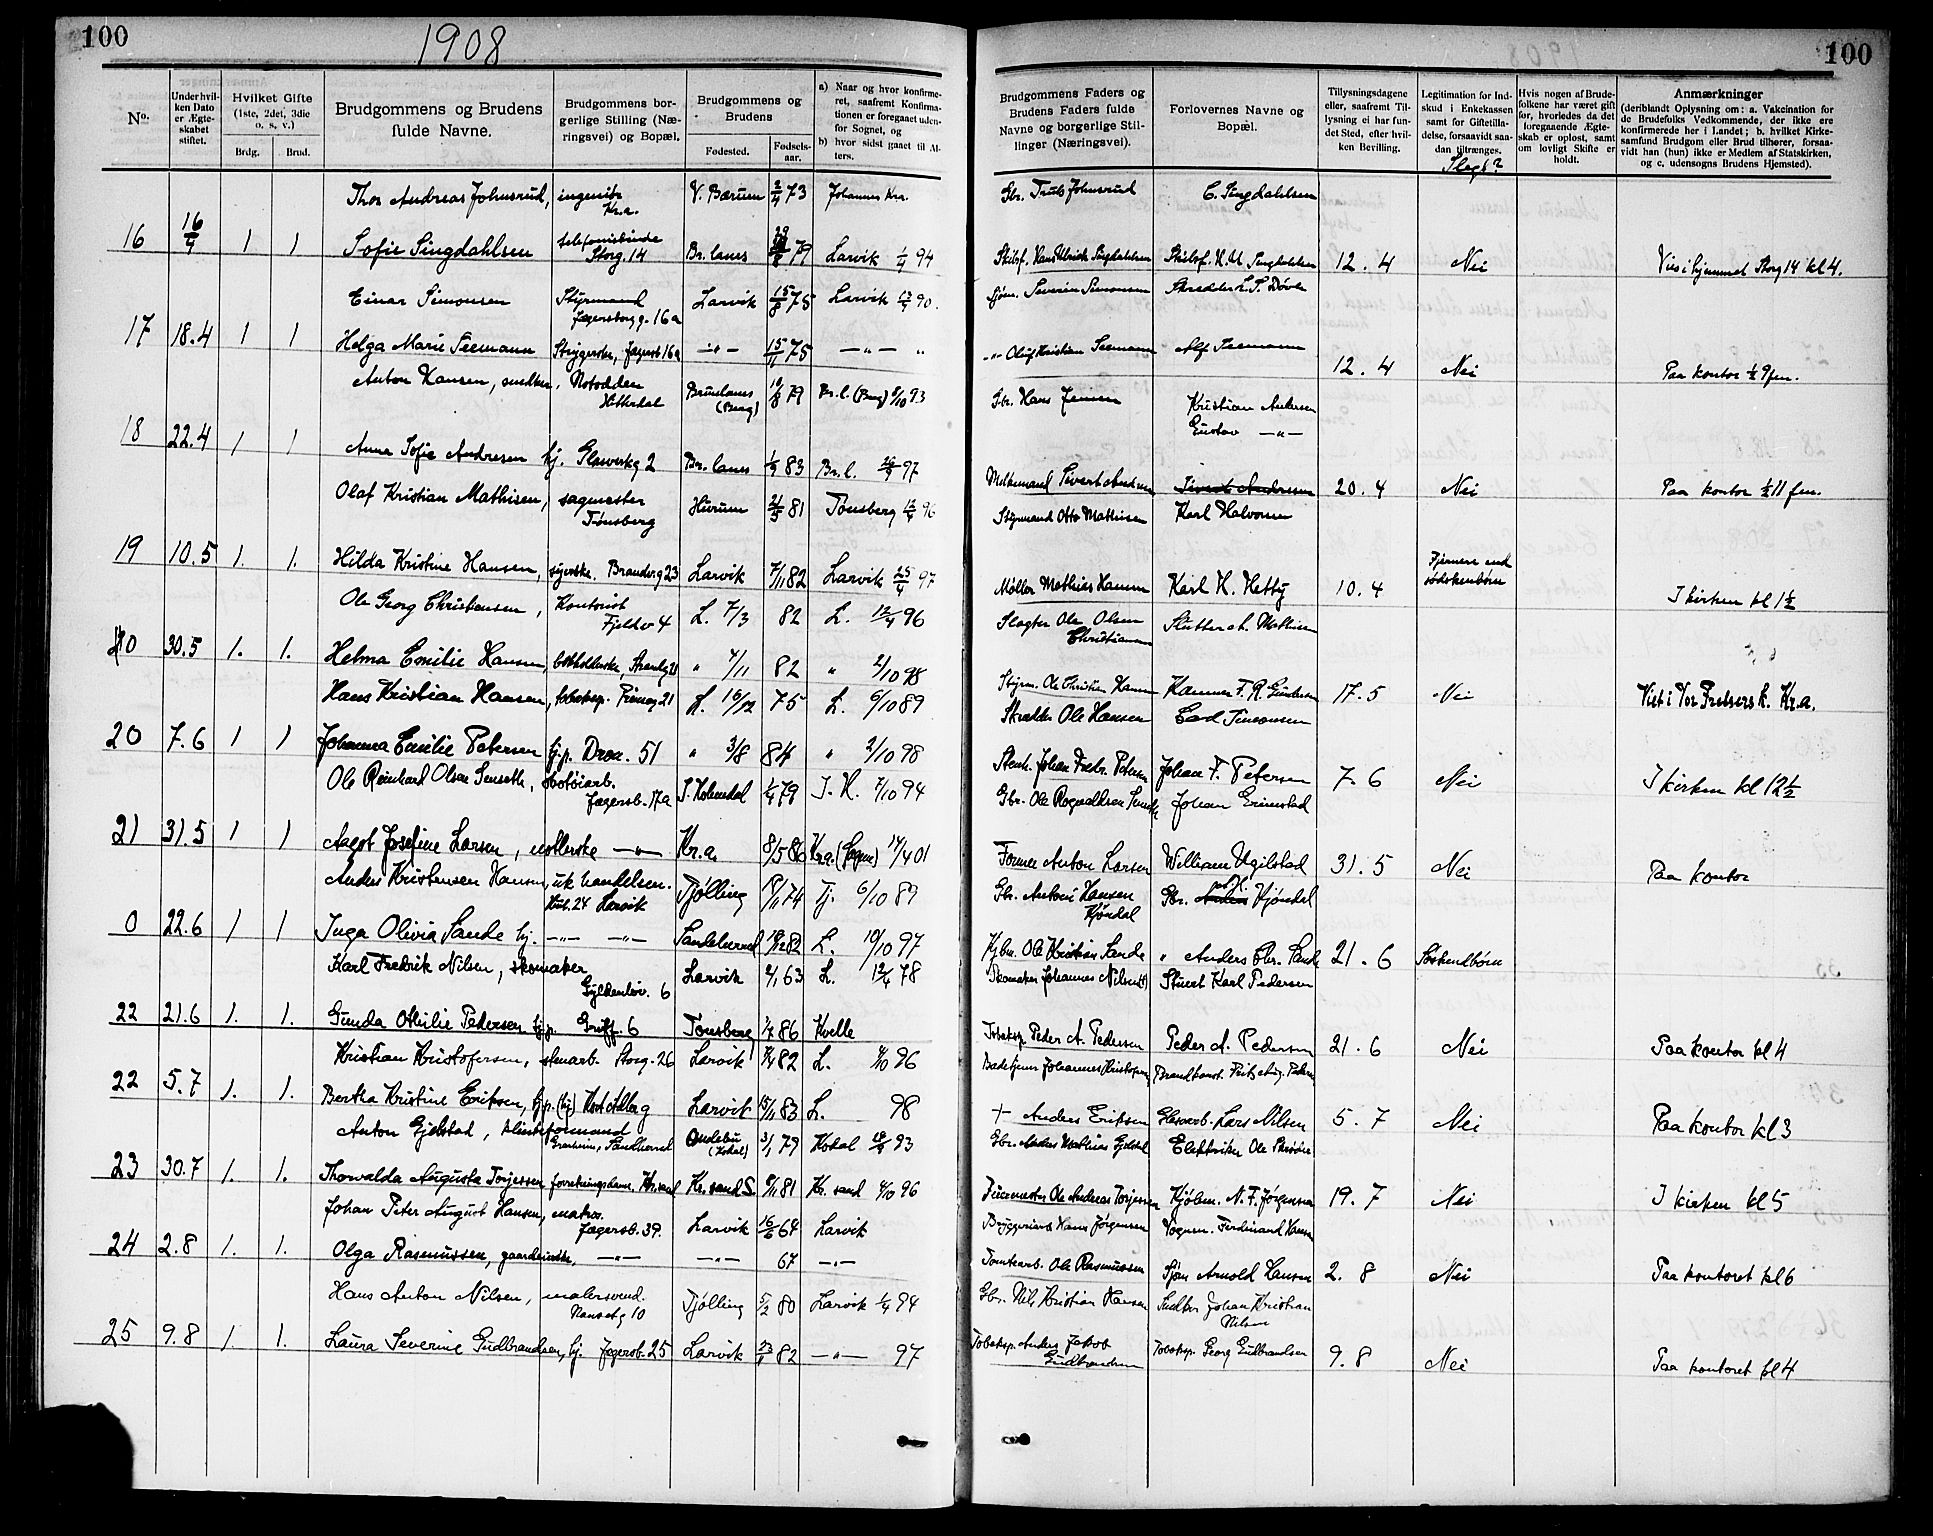 100
1908
No.
Under hvilken Dato er Ægteskabet stiftet.
Hvilket Gifte (1ste, 2det, 3die o. s. v.)
Brdg. Brud.
Brudgommens og Brudens fulde Navne.
Brudgommens borgerlige Stilling (Næringsvei) og Bopæl.
Brudgommens og Brudens
Fødested. Fødselsaar.
a) Naar og hvor konfirmeret, saafremt Konfirmationen er foregaaet udenfor Sognet, og
b) hvor sidst gaaet til Alters.
Thor Andreas Johnsrud, ingeniør Kr.a. V. Bærum 2/4 73 Johannes Kra.
16 16/4 1 1 Sofie Singdahlsen telefonistinde Storg. 14 Br.lanes 79 Larvik 1/4 94
Einar Simonsen Styrmand Jegersborg g. 16a Larvik 15/8 75 Larvik 13/4 90.
17 18.4 1 1 Helga Marie Seemann Strygerske, Jegersb 16a —"— 15/11 75 —"— "
Anton Hansen, snedker, Notodden Hitterdal Brunlanes (Berg) 10/8 79 Br.l. (Berg) 8/10 93
18 22.4 1 1 Anna Sofie Andresen hj. Glasverkg 2 Br.lanes 1/9 83 Br.l. 26/9 97
Olaf Kristian Mathisen, sagmester Tønsberg Hurum 21/5 81 Tønsberg 12/4 96
19 10.5 1. 1. Hilda Kristine Hansen, syerske. Brandv.g 23 Larvik 7/11 82 Larvik 25/4 97
Ole Georg Christensen, Kontorist Fjeldv 4 L. 7/3 82 L. 12/4 96
0 30.5 1. 1. Helma Emilie Hansen, " 4/11 82 " 2/10 98
Hans Kristian Hansen, tobaksp. Prinseg 21 L. 16/12 75 L. 6/10 89
20 7.6 1 1 Johanna Emilie Petersen hj.p. Dron. 51 " 3/8 84 " 2/10 98
Ole Reinhard Olsen Semseth, skotøiarb. Jegersb. 17a S. Holmedal 1/4 79 S. H. 7/10 94
21 31.5 1 1 Aagot Josefine Larsen, nøtlerske —"— Kr.a. 8/5 86 Kr.a. (Sagene) 14/4 01
Anders Kristensen Hansen, uk handelsm. Larvik Tjølling 18/11 74 Tj. 6/10 89
0 22.6 1 1 Inga Olivia Sande hj. —"— —"— Sandeherred 18/12 82 L. 10/10 97
Karl Fredrik Nilsen, skomaker Gyldenløv. 6 Larvik 4/1 63 L. 12/4 78
22 21.6 1. 1. Gunda Othilie Pedersen hj.p. Greff. 6 Tønsberg 86 Kvelle
Kristian Kristofersen, stenarb. Storg. 26 Larvik 82 L. 4/10 96
22 5.7 1. 1. Bertha Kristine Eriksen, hj.p. Larvik 15/11 83 L. 98
Anton Gjelstad, Sandherred Andebu (Kodal) 3/1 79 Kodal 93
23 30.7 1. 1. Thorvalda Augusta Torjessen forretningsdame. Kr.sand Kr.sand S. 81 Kr. sand 4/10 96
Johan Peter August Hansen, matros. Jegersb. 39. Larvik 16/6 64 Larvik
24 2.8 1. 1. Olga Rasmussen, —"— —"— 67 —"—
Hans Anton Nilsen, malersvend. Nansetg 10 Tjølling 5/2 80 Larvik 1/4 94
25 9.8 1. 1. Laura Severine Gudbrandsen, hj. Jegersb. 25 Larvik 82 —"— 97
100
Brudgommens Faders og Brudens Faders fulde Navne og borgerlige Stillinger (Næringsvei).
Forlovernes Navne og Bopæl.
Tillysningsdagene eller, saafremt Tillysning ei har fundet Sted, efter hvilken Bevilling.
Legitimation for Indskud i Enkekassen samt for Giftetilladelse, forsaavidt saadan tiltrænges.
Slegt?
Hvis nogen af Brudefolkene har været gift før, hvorledes da det foregaaende Ægteskab er opløst, samt om lovligt Skifte er holdt.
Anmærkninger
(deriblandt Oplysning om: a. Vakcination for de Brudefolks Vedkommende, der ikke ere konfirmerede her i Landet; b. hvilket Kirkesamfund Brudgom eller Brud tilhører, forsaavidt han (hun) ikke er Medlem af Statskirken, og c. udensogns Brudens Hjemsted).
Gbr. Truls Johnsrud C. Singdahlsen
Skibsf. Hans Ulrick Singdahlsen Skibsf. H. U. Singdahlsen 12. 4 Nei Viet i hjemmet Storg 14 kl 4.
Sjøm. Severin Simonsen Skrædder L. S. Døvle
—"— Oluf Kristian Seemann Alf Seemann 12. 4 Nei Paa kontor ½ 9 fm.
Gbr. Hans Jensen Kristian Andersen
Gustav —"—
Melkemand Sivert Andresen Sivert Andresen 20. 4 Nei Paa kontor ½ 11 fm.
Styrmand Otto Mathisen Karl Halvorsen
Møller Mathias Hansen Karl H. Hetty 10. 4 Fjernere end sødskenbørn I kirken kl 1½
Slagter Ole Olsen Christiansen Slutter A. Mathisen
Styrm. Ole Christian Hansen F. R. Gundersen 17. 5 Nei Viet i Vor Frelsers k. Kr.a.
Skredder Ole Hansen Carl Simonsen
Stenh. Johan Fredr. Petersen Johan F. Petersen 7. 6 Nei I kirken kl 12½
Gbr. Ole Rognaldsen Semseth Johan Grimstad
Former Anton Larsen William Ugilstad 31. 5 Nei Paa kontor
Gbr. Antoni Hansen Hjøndal Gbr. Anders Hjøndal
Ole Kristian Sande " Anders Chr. Sande 21. 6 Søskendbørn
Skomaker Johannes Nilsen Stuert Karl Pedersen
Tobaksp. Peder A. Pedersen Peder A. Pedersen 21. 6 Nei Paa kontor kl 4
Badetjener Johannes Kristofersen Brandkonst.
+ Anders Eriksen Glasarb. Lars Nilsen 5. 7 Nei Paa kontor kl 3
Gbr. Anders Mathias Gjelstad Elektriker Ole
Ole Andreas Torjessen Kjøbm. N. F. Jørgensen 19. 7 Nei I kirken kl 5
Bryggeriarb Hans Jørgensen Vognm. Ferdinand Hansen
Tomtearb. Ole Rasmussen Sjøm Arnold Hansen 2. 8 Nei Paa kontoret kl 6
Gbr. Nils Kristian Hansen Snedker Johan Kristian Nilsen
Tobaksp. Anders Jakob Gudbrandsen Tobaksp. Georg Gudbrandsen 9. 8 Nei Paa kontoret kl 4